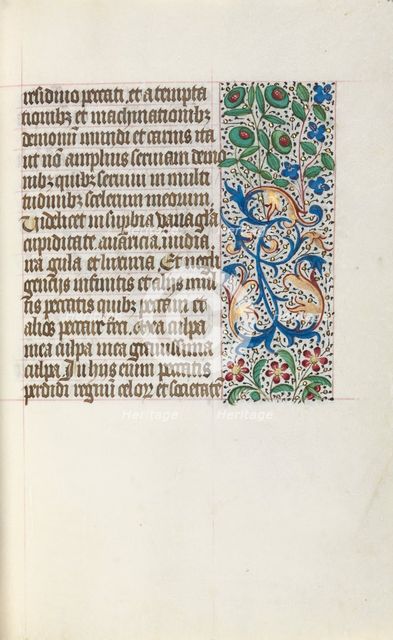 residuo peccati, et a tempta
tionibz et machinationibz
demonu mundi et carnis ita
ut no amplius seruiam demo
nibz quibz seruiui in multi
tudinibz scelerum meorum,
Videlicet in supbia vana gla
cupiditate auaricia, inuidia,
ira gula et luxuria Et negli
gencijs infinitis et alijs mul
tis peccatis quibz peccaui et
alios peccare feci, mea culpa
mea culpa mea grauissima
culpa In hijs enim peccatis
perdidi regnu celor et societate
heritage
Heritage
Heritage